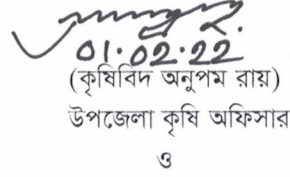 01.02.22
(কৃষিবিদ অনুপম রায়)
উপজেলা কৃষি অফিসার
ও